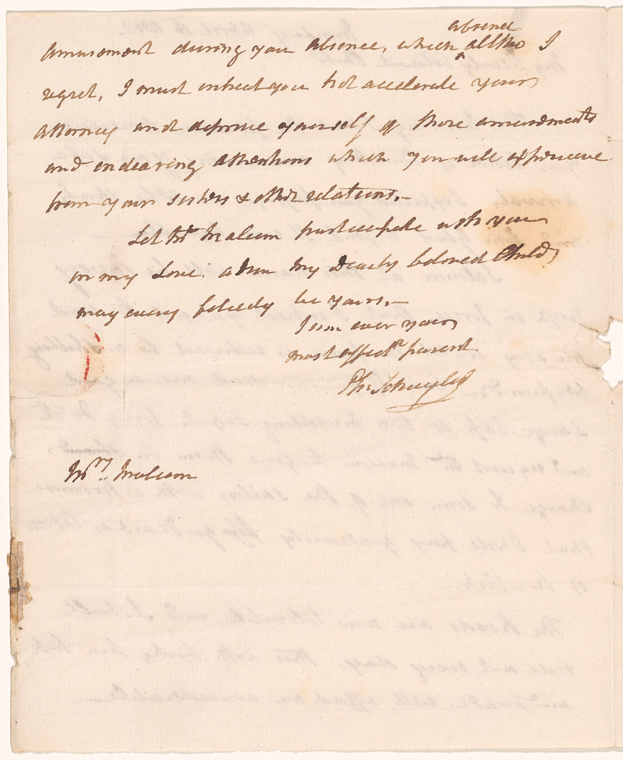 absence
amusement during your absence, which ^ altho I
regret, I must intreat you not accelerate your
and deprive yourself of those amusements
and endearing attentions which you will experience
from your sisters & other relations.—
Let Mr. Malcom participate with you
in my Love. adieu My Dearly beloved Child
may every felicity be yours.—
I am ever your
most affecte. parent
Ph: Schuyler
Mrs. Malcom